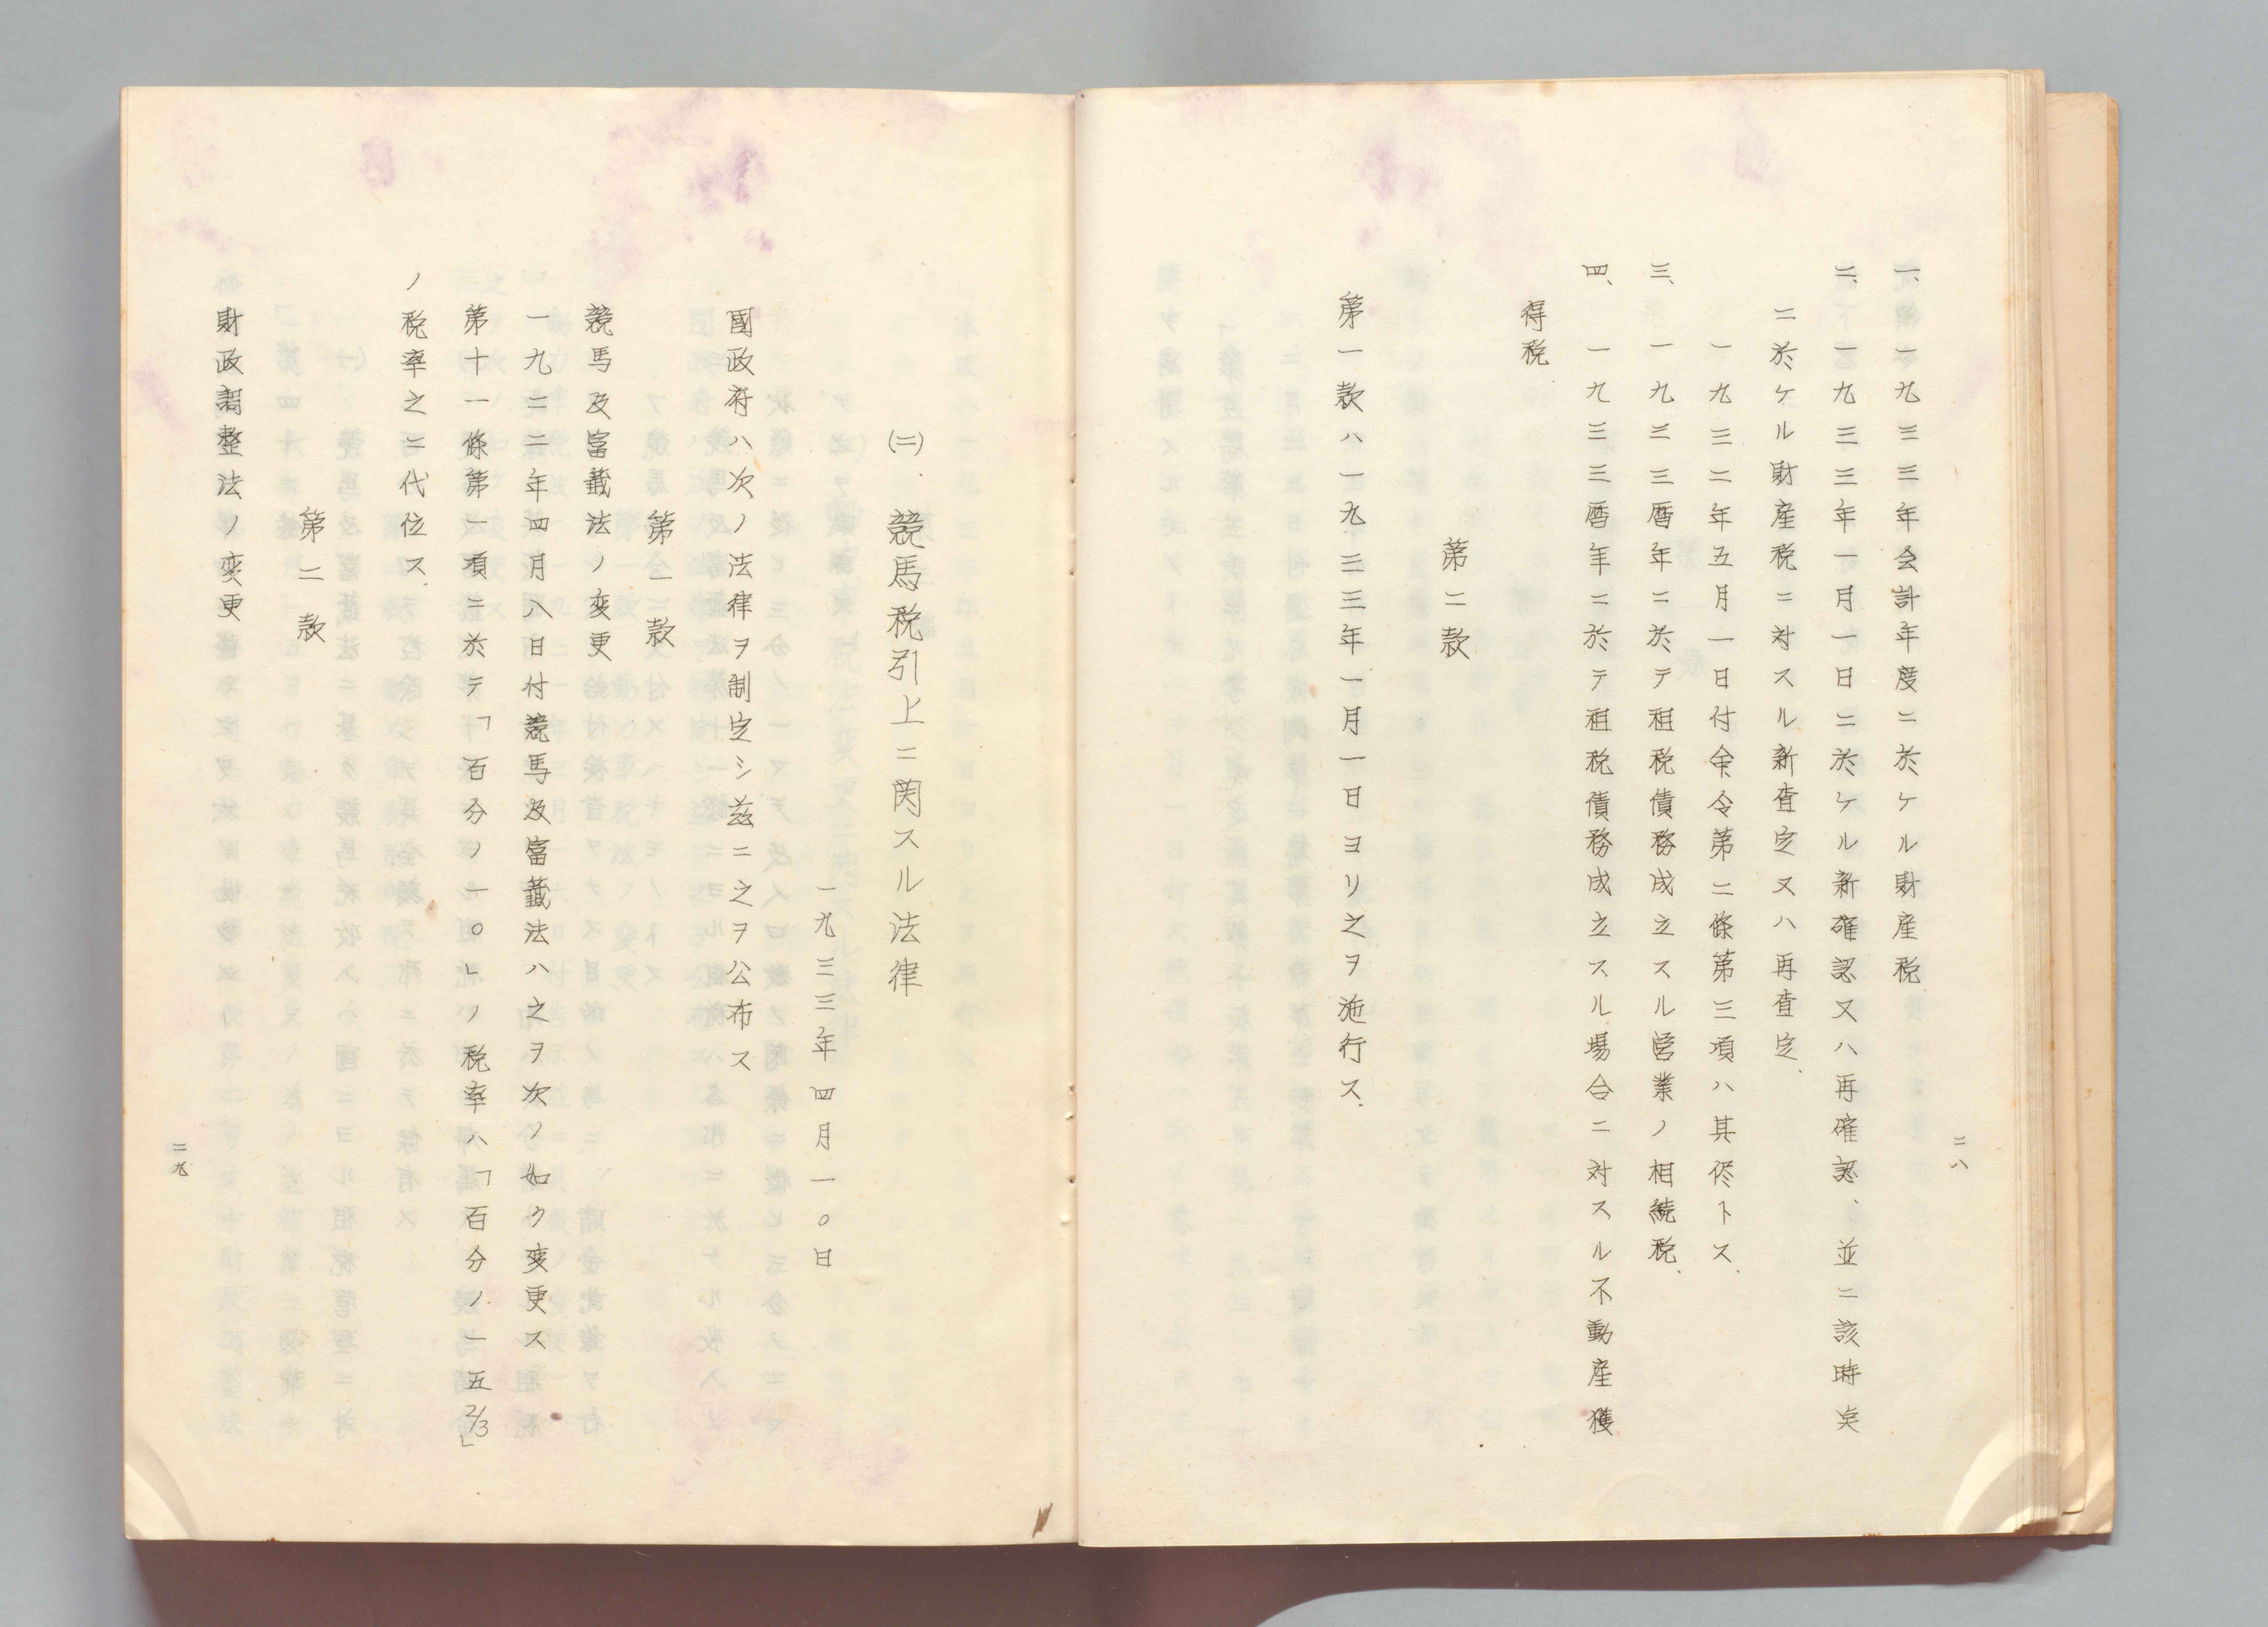 二八
一、一九三三年会計年度ニ於ケル財産税
二、一九三三年一月一日ニ於ケル新確認又ハ再確認、並ニ該時点
ニ於ケル財産税ニ対スル新査定又ハ再査定、
一九三二年五月一日付命令第二條第三項ハ其侭トス、
三、一九三三暦年ニ於テ租税債務成立スル営業ノ相続税、
四、一九三三暦年ニ於テ租税債務成立スル場合ニ対スル不動産獲
得税
第二款
第一款ハ一九三三年一月一日ヨリ之ヲ施行ス、
(二)、競馬税引上ニ関スル法律
一九三三年四月一〇日
國政府ハ次ノ法律ヲ制定シ茲ニ之ヲ公布ス
第一款
競馬及富籤法ノ変更
一九二二年四月八日付競馬及富籤法ハ之ヲ次ノ如ク変更ス
第十一條第一項ニ於テ「百分ノ一〇」ノ税率ハ「百分ノ一五2/3」
ノ税率之ニ代位ス、
第二款
財政調整法ノ変更
二九